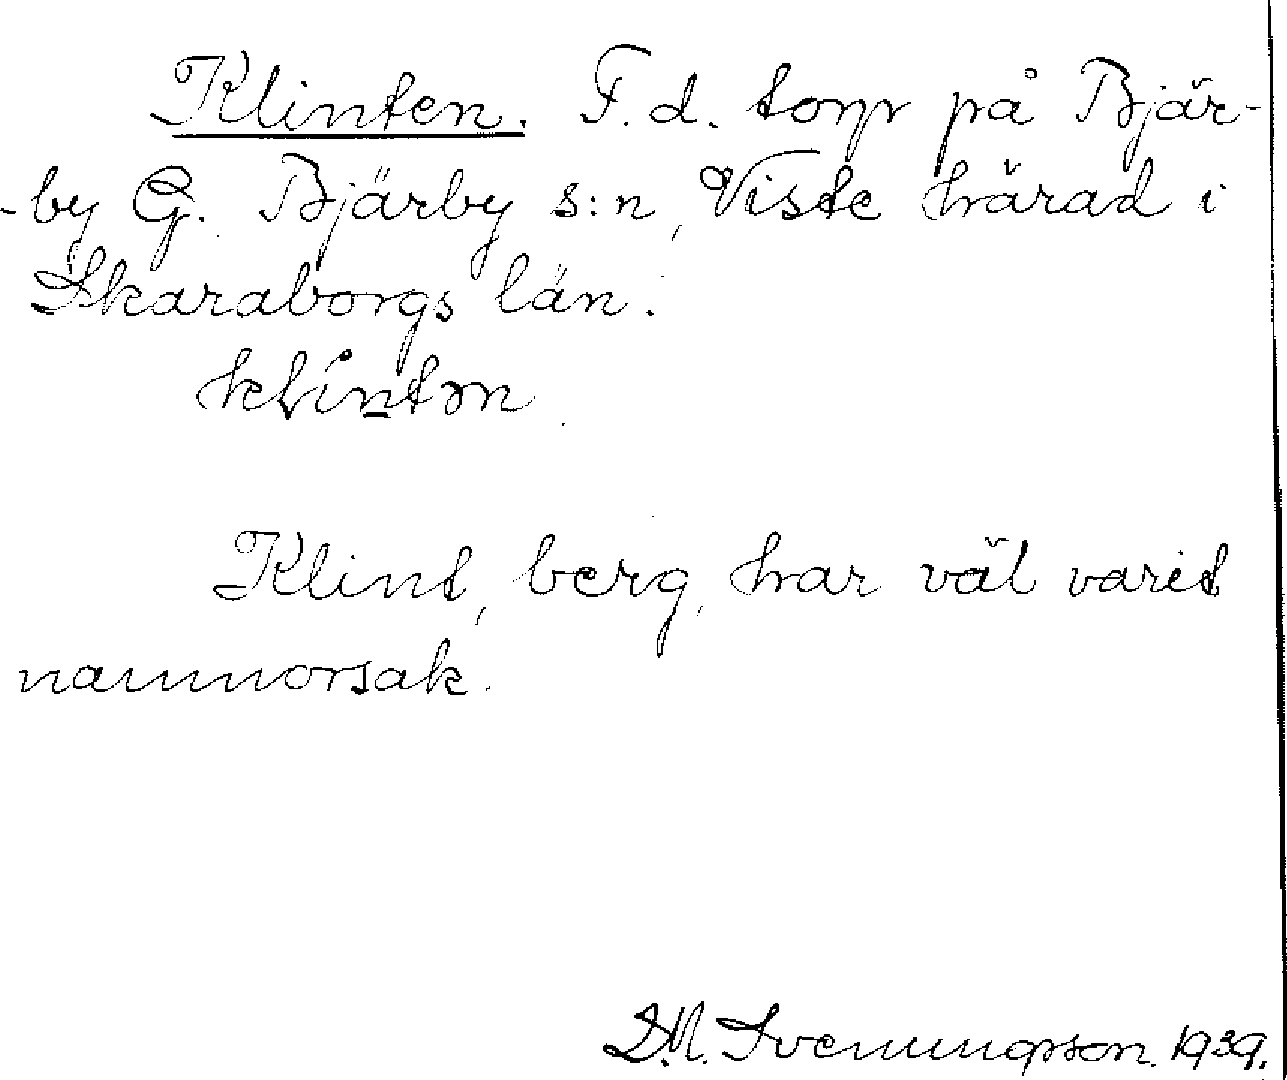 Klinten. F.d. torp på Bjär-
-by G. Bjärby s:n, Viste härad i
Skaraborgs län.
klintən
Klint, berg, har väl varit
namnorsak.
D.M. Svenungsson. 1939.